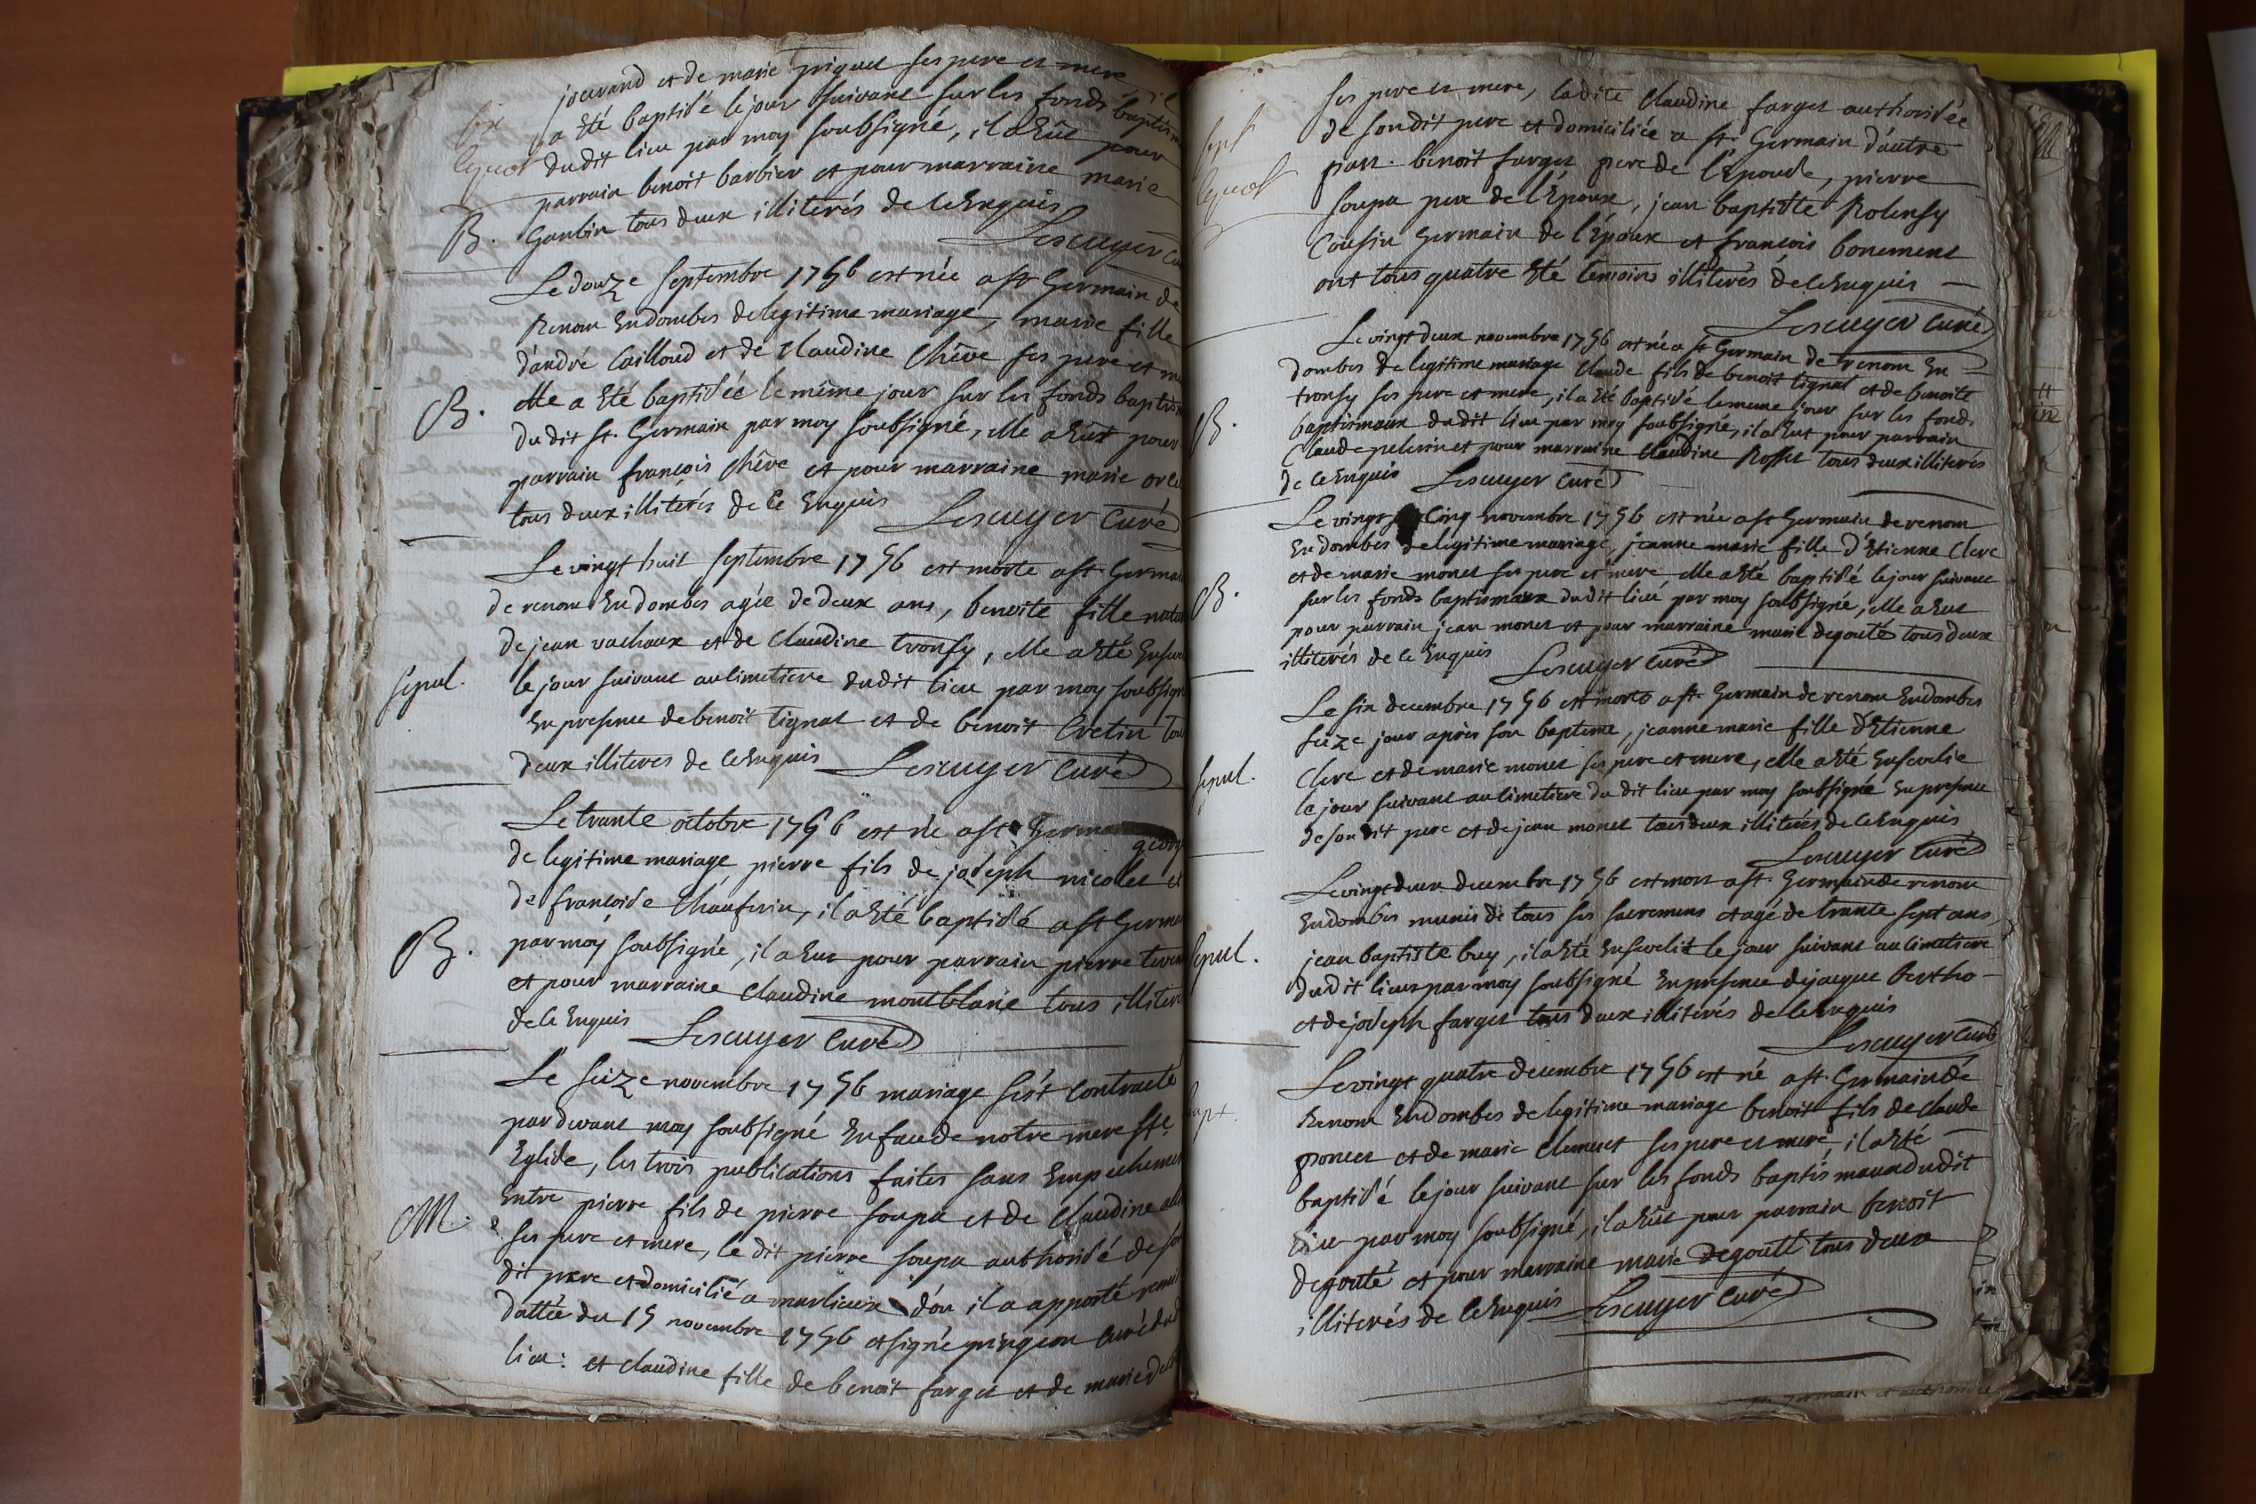 jouvand et de marie piquet ses pere et mere il
a Eté baptisé le jour suivant sur les fonds baptism
du dit lieu par moy soubsigné, il a Eût pour
parrain benoit barbier et pour marraine marie
B. Gonbin tous deux illiterés de ce Enquis
Lescuyer Cu
Le douze septembre 1756 est née a st Germain de
Renom En dombes de legitime mariage, marie fille
d'andré Cailloud et de Claudine Chêve ses pere et me
B. elle a Eté baptisée le même jour sur les fonds baptism
du dit st. Germain par moy soubsigné, elle a Eut pour
parrain françois Chêve et pour marraine marie
tous deux illiterés de Ce Enquis Lescuyer Curé
Le vingt huit septembre 1756 est morte a st. Germai
de renom En dombes agée de deux ans, benoite fille natur
de jean vachoux et de Claudine tronfy, elle a Eté Enseve
sepul. le jour suivant au Cimetiere du dit lieu par moy soubsign
En presence de benoit tignat et de benoit Cretin tou
deux illiteres de ce Enquis Lescuyer Curé
Le trante octobre 1756 est né a st Germai
de legitime mariage, pierre fils de joseph nicolet et
de françoise Chauferin, il a Eté baptisé a st Germa
B. par moy soubsigné, il a Eut pour parrain pierre
et pour marraine Claudine montblane tous illitere
de Ce Enquis Lescuyer Curé
Le seize novembre 1756 mariage s'est Contracté
par devant moy soubsigné En face de notre mere ste
Eglise, les trois publications faites sans Empechement
M. Entre pierre fils de pierre soupa et de Claudine
ses pere et mere, le dit pierre soupa authorisé de so
dit pere et domicilié a marlieux d'ou il a apporté remis
dattée du 15 novembre 1756 et signé pingeon Curé du d
lieu: et Claudine fille de benoit farget et de marie
ses pere et mere, ladite Claudine farget authorisée
de son dit pere et domiciliée a st. Germain d'autre
part. benoit farget pere de l'Epouse, pierre
soupa pere de l'Epoux, jean baptiste Rolensy
Cousin Germain de l'Epoux et françois bonement
ont tous quatre Eté temoins illiterés de ce Enquis
Lescuyer Curé
Le vingt deux novembre 1756 est né a st Germain de renom En
dombes de legitime mariage Claude fils de benoit tignat et de benoite
tronfy ses pere et mere, il a Eté baptisé le meme jour sur les fonds
B. baptismaux du dit lieu par moy soubsigné, il a Eut pour parrain
Claude pelerin et pour marraine Claudine Rosset tous deux illiterés
de Ce Enquis Lescuyer Curé
Le vingt Cinq novembre 1756 est née a st Germain de renom
En dombes de legitime mariage, jeanne marie fille d'Etienne Clerc
et de marie monet ses pere et mere elle a Eté baptisé le jour suivant
B. sur les fonds baptismaux du dit lieu par moy soubsigné, elle a Eut
pour parrain jean monet et pour marraine marie degouté tous deux
illiterés de Ce Enquis Lescuyer Curé
Le six decembre 1756 est morte a st. Germain de renom En dombes
seize jour après son bapteme, jeanne marie fille d'Etienne
sepul. Clerc et de marie monet ses pere et mere, elle a Eté Ensevelie
le jour suivant au Cimetiere du dit lieu par moy soubsigné En presence
de son dit pere et de jean monet tous deux illiterés de Ce Enquis
Lescuyer Curé
Le vingt deux decembre 1756 est mort a st. Germain de renom
En dombes munis de tous ses sacremens et agé de trante sept ans
sepul. jean baptiste buy, il a Eté Ensevelit le jour suivant au Cimetiere
du dit lieu par moy soubsigné En presence de jacque Bertho
et de joseph farget tous deux illiterés de ce Enquis
Lescuyer Curé
Le vingt quatre decembre 1756 est né a st. Germain de
bapt. Renom En dombes de legitime mariage benoit fils de Claude
poncet et de marie Clement ses pere et mere, il a Eté
baptisé le jour suivant sur les fonds baptismaux du dit
Lieu par moy soubsigné, il a Eût pour parrain benoit
degouté et pour marraine marie degouté tous deux
illiterés de Ce Enquis Lescuyer Curé